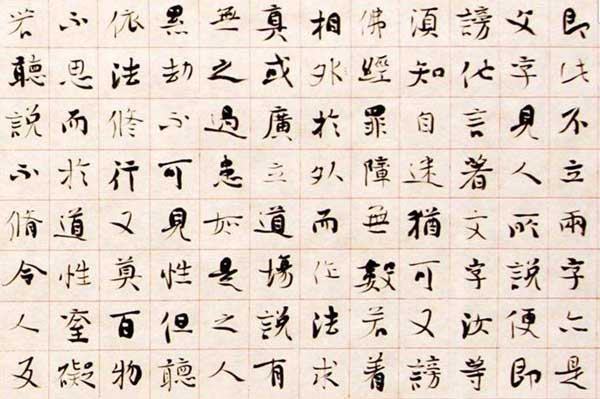 即此不立兩字亦是
文字見人所說便即
謗他言著文字汝等
須知自迷猶可又謗
佛經罪障無數若着
相外於外而作法求
真或廣立道場說有
無之過患如是之人
累劫不可見性但聽
依法修行又莫百物
不思而於道性窒礙
若聽說不脩令人反